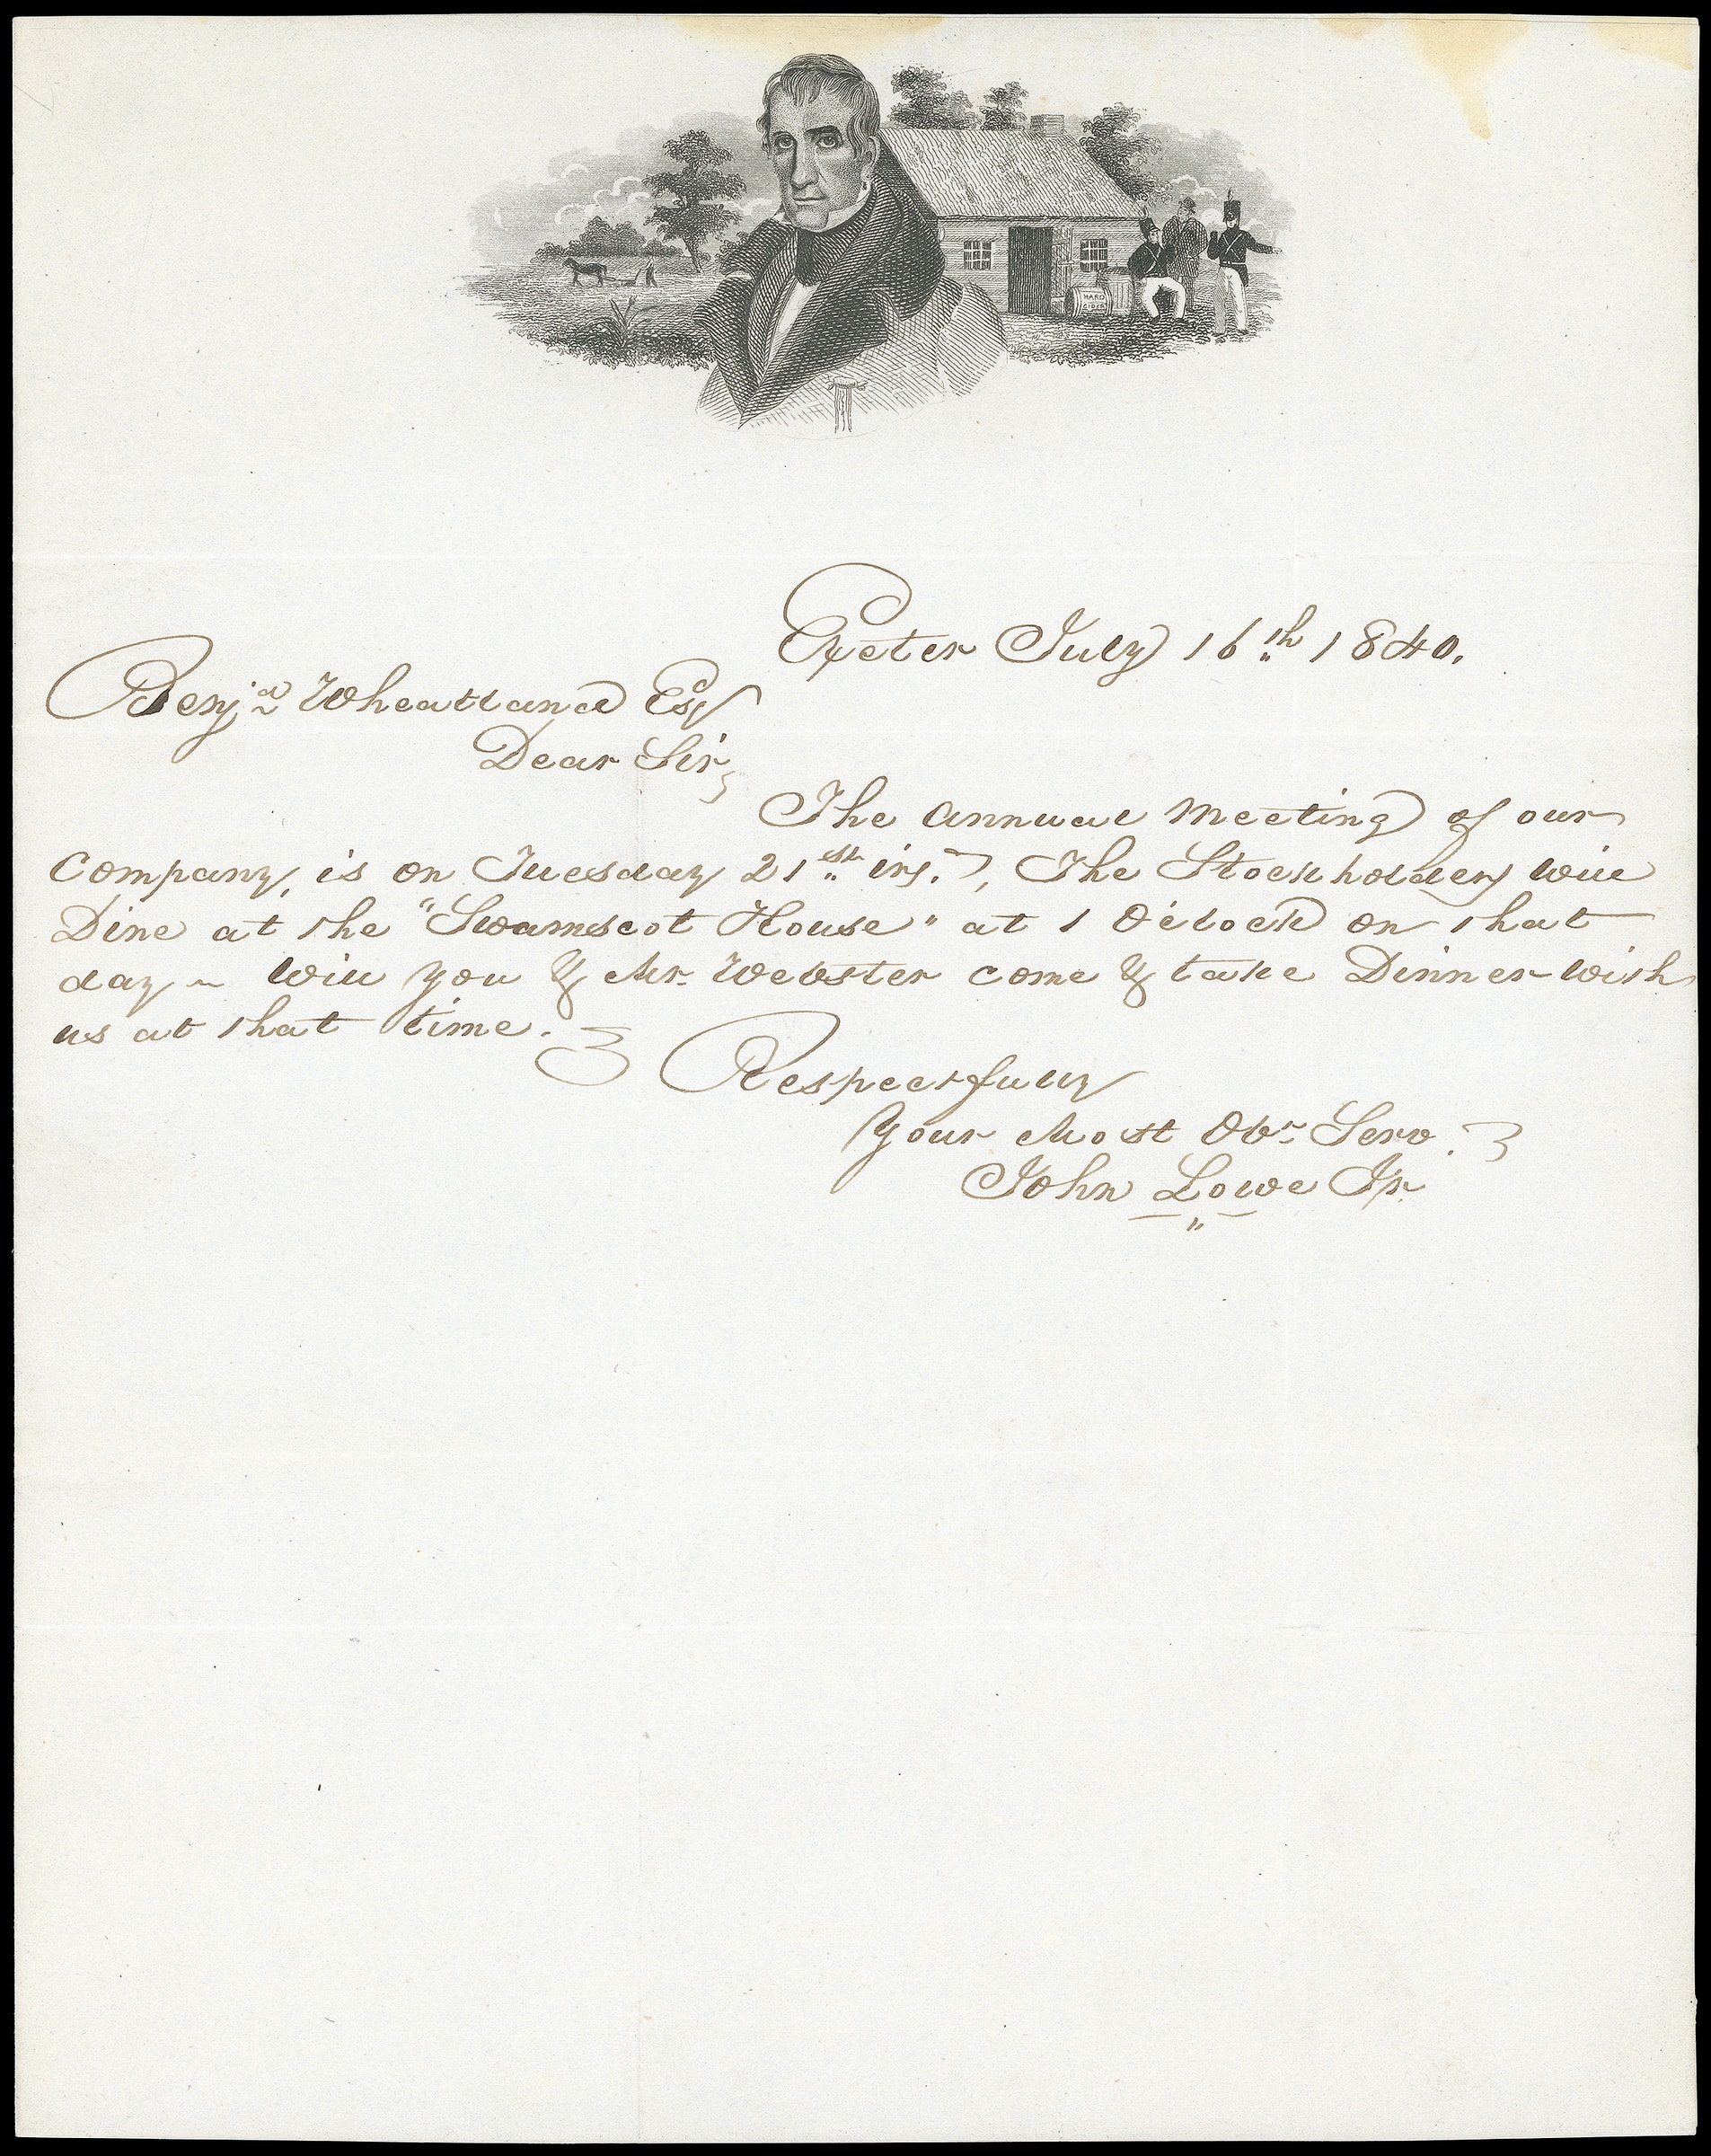 HARD
CIDER
Exeter July 16th 1840.
Benj.a Wheatland Esq
Dear Sir,
The annual Meeting of our
Company, is on Tuesday 21st ins.t, The Stockholders will
Dine at the "Swamscot House" at 1 O'clock on that
day ~ Will you & Mr. Webster come & take Dinner with
us at that time.
Respectfully
Your Most Obt Serv.
John Lowe Jr.